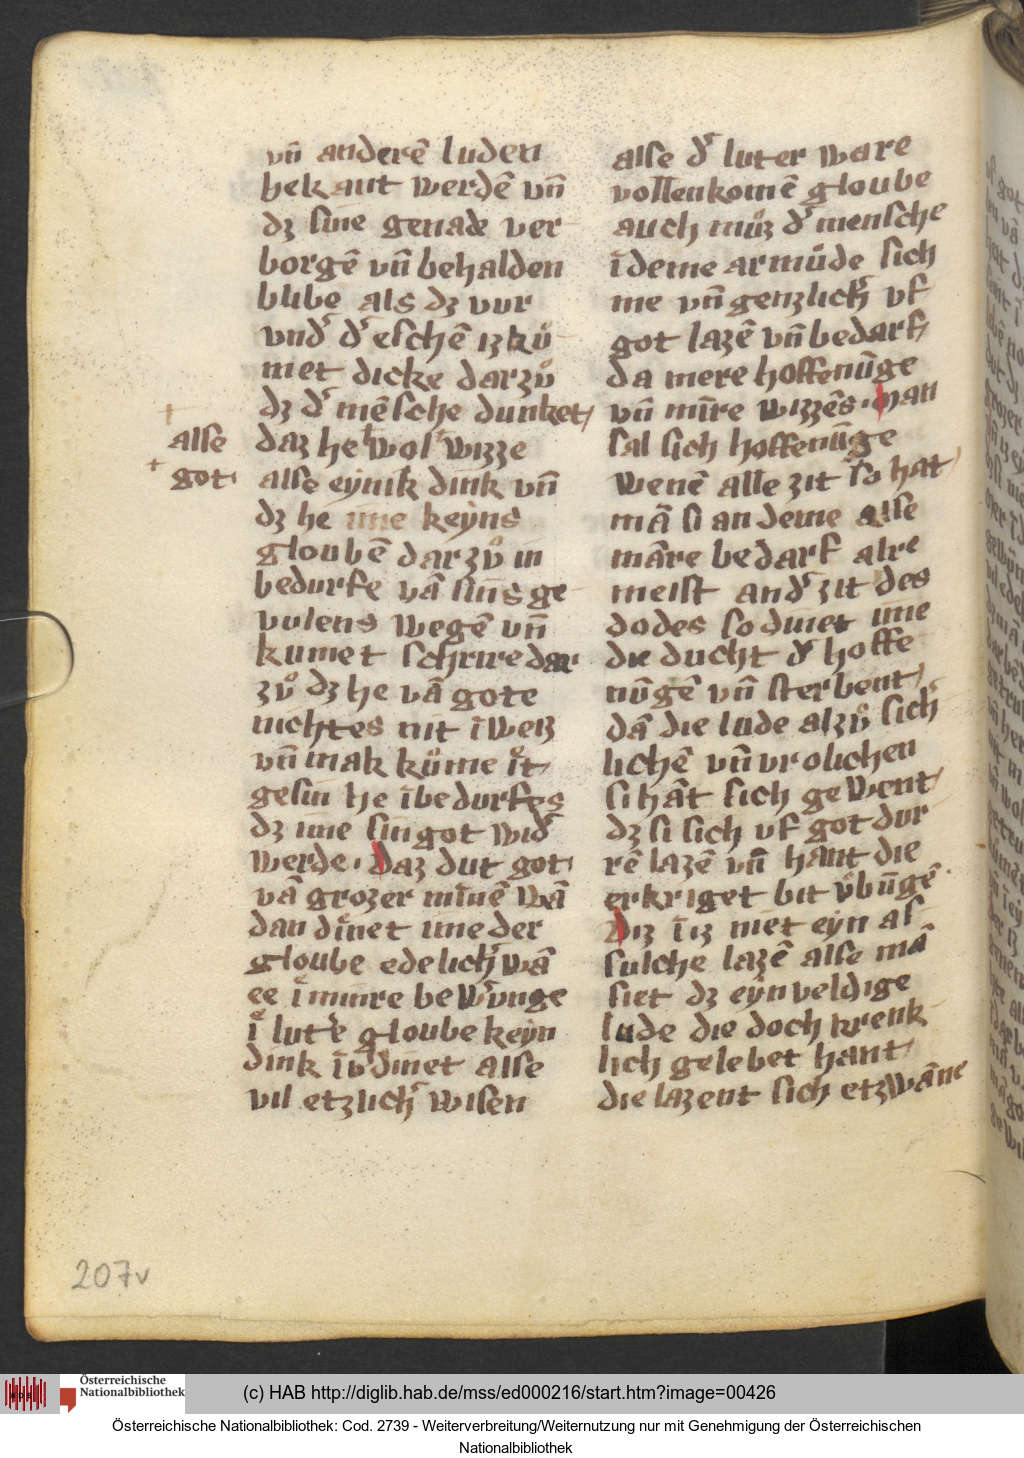 vn̄ anderē luden
bekant werdē vn̄
dʒ sine genade ver
borgē vn̄ behalden
blibe als dʒ vur
vnd͛ d͛ eschē iʒ kuͦ
met dicke darzvͦ
dʒ d͛ mēsche dunket
daz he wol wizze
alse eynik dink vn̄
dʒ he ime keyns
gloubē darzvͦ in
bedurfe vā sins ge
vulens wegē vn̄
kumet schrire dar
zvͦ dʒ he vā gote
nichtes nit īweiz
vn̄ mak kuͦme it
gesin he ībedurfes
dʒ ime sin got wid͛
werde. Daz dut got
vā grozer minē wā
dan dinet ime der
gloube edelich͛ wā
ee ī minre bewͮnge
ī lut͛e gloube keyn
dink īvͦdinet alse
vil etzlich͛ wisen
alse
got.
alse d͛ luter ware
vollenkomē gloube
auch muͦz d͛ mensche
īdeme armuͤde sich
me vn̄ genzlich͛ vf
got lazē vn̄ bedarf
da mere hoffenūge
vn̄ mīre wizzēs. Man
sal sich hoffenūge
wenē alle zit so hat
mā si an deme alse
māre bedarf alre
meist and͛ zit des
dodes so dinet ime
die ducht d͛ hoffe
nūgē vn̄ sterbent
dā die lude alzvͦ sich
lichē vn̄ vrolichen
si hāt sich gewent
dʒ si sich vf got dur
rē lazē vn̄ hant die
erkriget bit vͦbūgē
Diz īiz niet eyn al
sulche lazē alse mā
siet dʒ eynveldige
lude die doch krenk
lich gelebet hant
die lazent sich etzwāne
207v
Österreichische
Nationalbibliothek
(c) HAB http://diglib.hab.de/mss/ed000216/start.htm?image=00426
Österreichische Nationalbibliothek: Cod. 2739 - Weiterverbreitung/Weiternutzung nur mit Genehmigung der Österreichischen
Nationalbibliothek